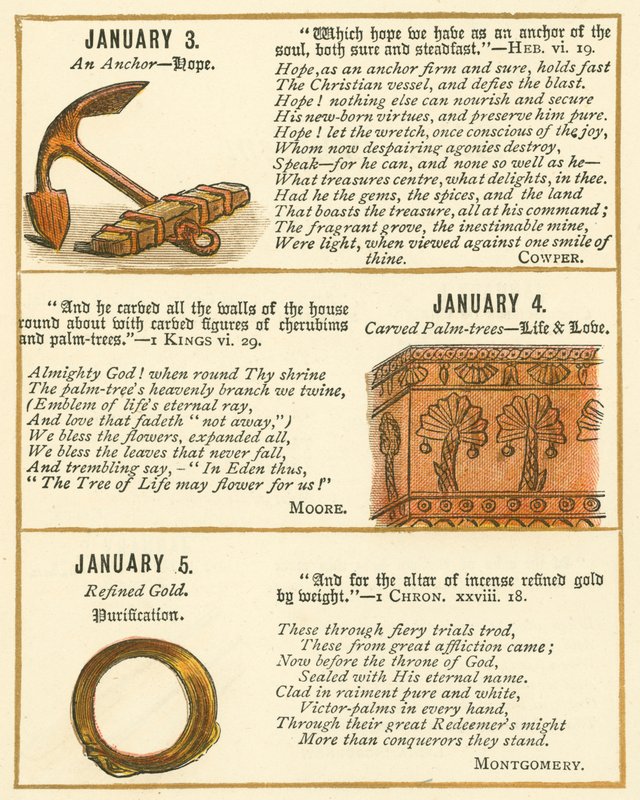 JANUARY 3.
An Anchor—Hope.
"Which hope we have as an anchor of the
soul, both sure and steadfast."—HEB. vi. 19.
Hope, as an anchor firm and sure, holds fast
The Christian vessel, and defies the blast.
Hope! nothing else can nourish and secure
His new-born virtues, and preserve him pure.
Hope! let the wretch, once conscious of the joy,
Whom now despairing agonies destroy,
Speak—for he can, and none so well as he—
What treasures centre, what delights, in thee.
Had he the gems, the spices, and the land
That boasts the treasure, all at his command;
The fragrant grove, the inestimable mine,
Were light, when viewed against one smile of
thine. COWPER.
"And he carved all the walls of the house
round about with carved figures of cherubims
and palm-trees."—1 KINGS vi. 29.
Almighty God! when round Thy shrine
The palm-tree's heavenly branch we twine,
(Emblem of life's eternal ray,
And love that fadeth "not away,")
We bless the flowers, expanded all,
We bless the leaves that never fall,
And trembling say,—"In Eden thus,
"The Tree of Life may flower for us!"
MOORE.
JANUARY 4.
Carved Palm-trees—Life & Love.
JANUARY 5.
Refined Gold.
Purification.
"And for the altar of incense refined gold
by weight."—1 CHRON. xxviii. 18.
These through fiery trials trod,
These from great affliction came;
Now before the throne of God,
Sealed with His eternal name.
Clad in raiment pure and white,
Victor-palms in every hand,
Through their great Redeemer's might
More than conquerors they stand.
MONTGOMERY.